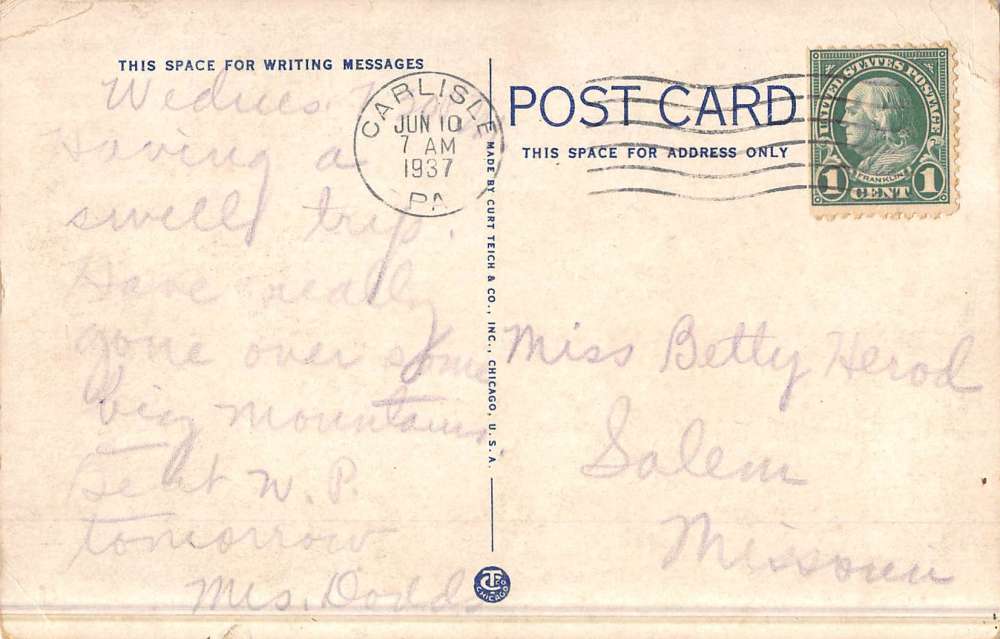 THIS SPACE FOR WRITING MESSAGES
Wednes.
Having a
swell trip.
Have really
gone over some
big mountains.
W. P.
tomorrow
Mrs. Dodds
CARLISLE
JUN 10
7 AM
1937
PA
MADE BY CURT TEICH & CO., INC., CHICAGO, U.S.A.
CT
CHICAGO
POST CARD
THIS SPACE FOR ADDRESS ONLY
UNITED STATES POSTAGE
FRANKLIN
1 CENT 1
Miss Betty Herod
Salem
Missouri